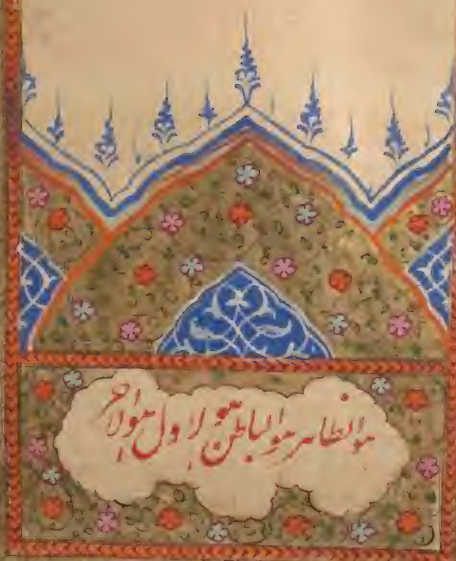 هو الظاهر هو الباطن هو الاول هو الاخر